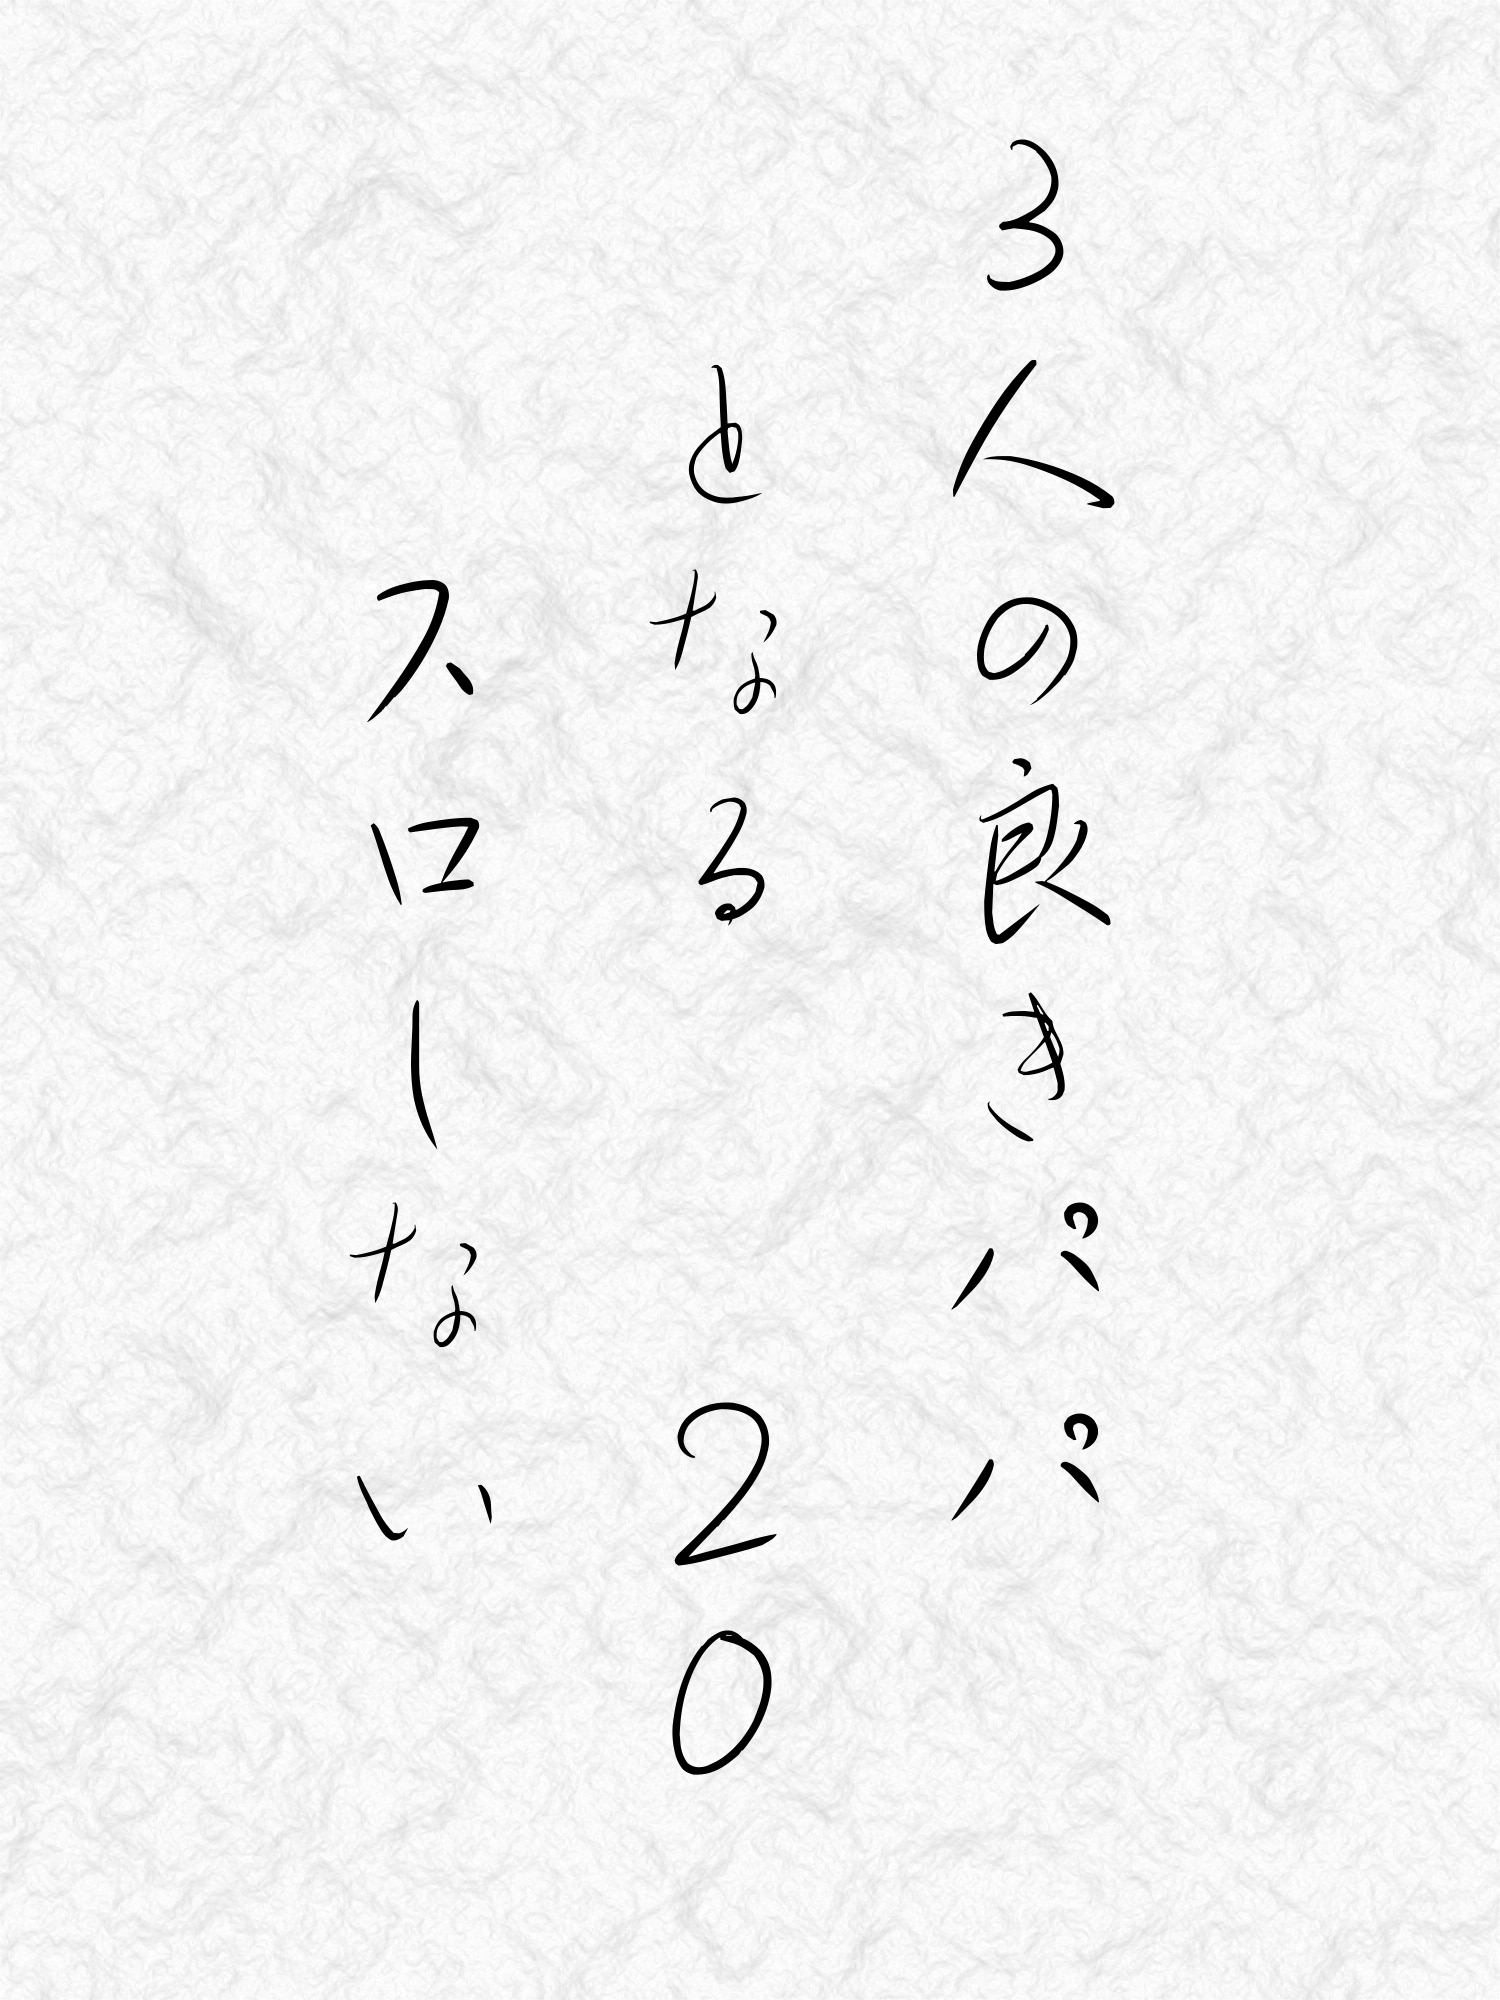 3人の良きパパ
となる 20
スローしない